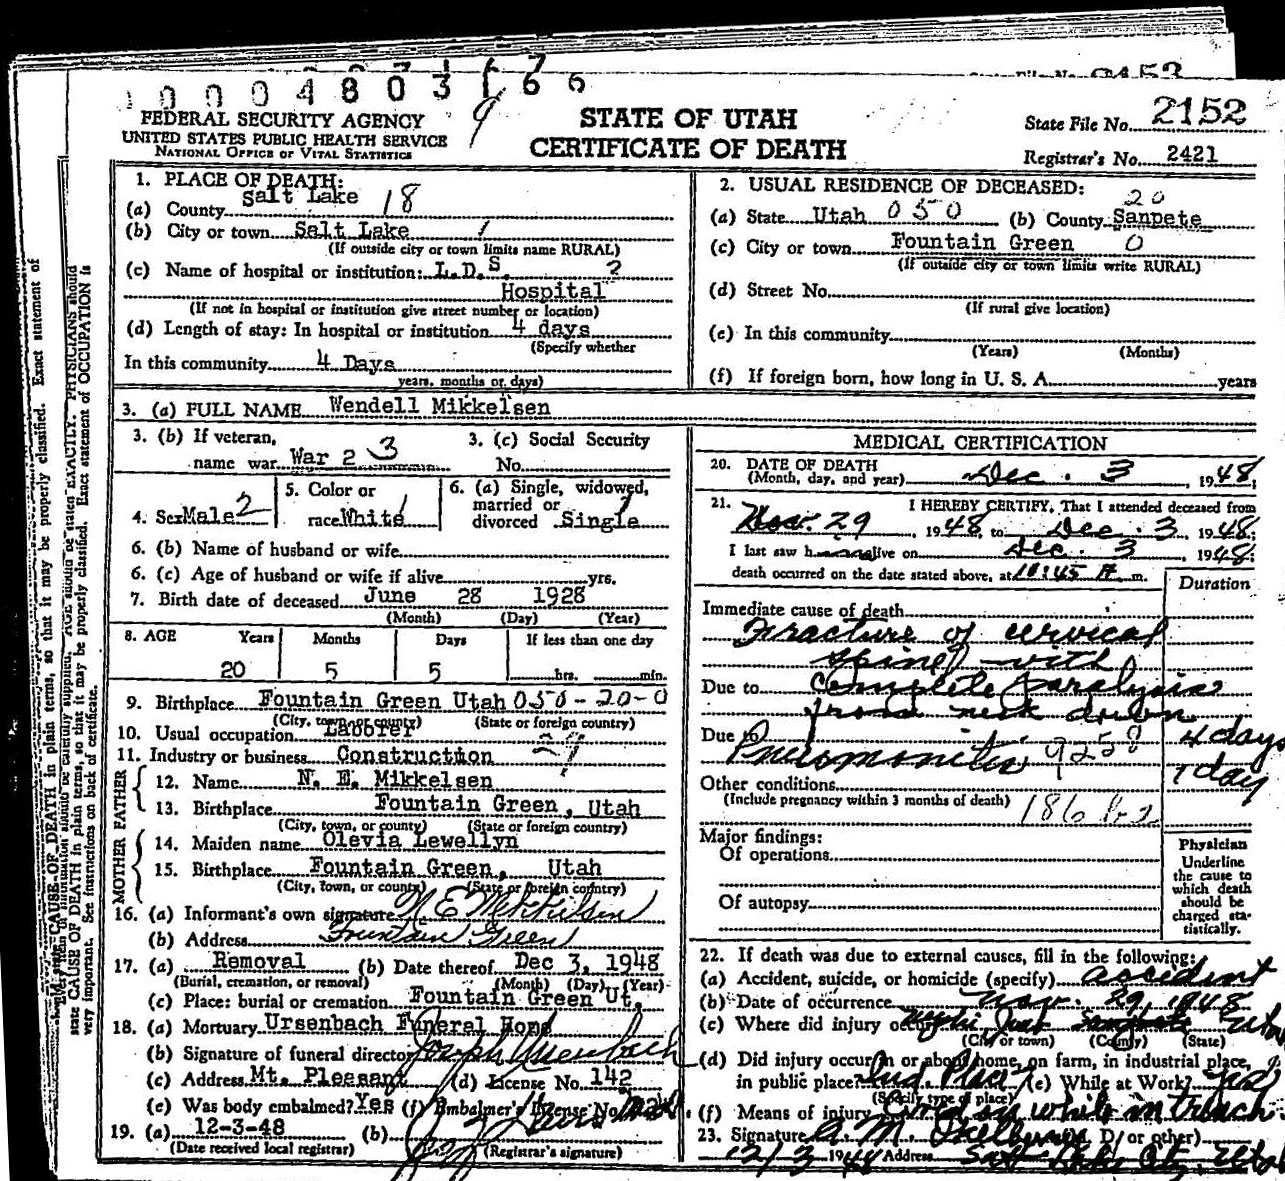 2153
1 0 0 0 4 8 0 3 1 6 6
9
FEDERAL SECURITY AGENCY
UNITED STATES PUBLIC HEALTH SERVICE
NATIONAL OFFICE OF VITAL STATISTICS
STATE OF UTAH
CERTIFICATE OF DEATH
State File No. 2152
Registrar's No. 2421
1. PLACE OF DEATH:
(a) County Salt Lake 18
(b) City or town Salt Lake 1
(If outside city or town limits name RURAL)
(c) Name of hospital or institution: L.D.S. 2
Hospital
(If not in hospital or institution give street number or location)
(d) Length of stay: In hospital or institution 4 days
(Specify whether
In this community 4 Days
years, months or days)
2. USUAL RESIDENCE OF DECEASED:
(a) State Utah 050 (b) County Sanpete 20
(c) City or town Fountain Green 0
(If outside city or town limits write RURAL)
(d) Street No.
(If rural give location)
(e) In this community
(Years) (Months)
(f) If foreign born, how long in U. S. A. years
3. (a) FULL NAME Wendell Mikkelsen
3. (b) If veteran, name war War 2 3
3. (c) Social Security No.
4. Sex Male 2
5. Color or race White 1
6. (a) Single, widowed, married or divorced Single 1
6. (b) Name of husband or wife
6. (c) Age of husband or wife if alive yrs.
7. Birth date of deceased June 28 1928
(Month) (Day) (Year)
8. AGE Years Months Days If less than one day
20 5 5 hrs. min.
9. Birthplace Fountain Green Utah 050-20-0
(City, town, or county) (State or foreign country)
10. Usual occupation Laborer
11. Industry or business Construction
FATHER
12. Name N. E. Mikkelsen
13. Birthplace Fountain Green, Utah
(City, town, or county) (State or foreign country)
MOTHER
14. Maiden name Olevia Lewellyn
15. Birthplace Fountain Green, Utah
(City, town, or county) (State or foreign country)
16. (a) Informant's own signature N E Mikkelsen
(b) Address Fountain Green
17. (a) Removal (b) Date thereof Dec 3, 1948
(Burial, cremation, or removal) (Month) (Day) (Year)
(c) Place: burial or cremation Fountain Green Ut.
18. (a) Mortuary Ursenbach Funeral Home
(b) Signature of funeral director Joseph Ursenbach
(c) Address Mt. Pleasant (d) License No. 142
(e) Was body embalmed? Yes (f) Embalmer's License No.
19. (a) 12-3-48 (b)
(Date received local registrar) (Registrar's signature)
MEDICAL CERTIFICATION
20. DATE OF DEATH
(Month, day, and year) Dec. 3, 1948;
21. I HEREBY CERTIFY, That I attended deceased from
Nov. 29, 1948, to Dec. 3 1948;
I last saw h alive on Dec. 3 1948;
death occurred on the date stated above, at 10:45 A m.
Duration
Immediate cause of death
Fracture of cervical
spine with
Due to complete paralysis
from neck down
Due to 4 days
Pneumonitis 9258 1 day
Other conditions
(Include pregnancy within 3 months of death)
Major findings:
Of operations
Of autopsy
Physician
Underline
the cause to
which death
should be
charged sta-
tistically.
22. If death was due to external causes, fill in the following:
(a) Accident, suicide, or homicide (specify) accident
(b) Date of occurrence Nov. 29, 1948
(c) Where did injury occur Nephi Juab Utah
(City or town) (County) (State)
(d) Did injury occur in or about home, on farm, in industrial place,
in public place? Ind. Place (e) While at Work? yes
(Specify type of place)
(f) Means of injury while in trench.
23. Signature A. M. (M. D. or other)
12/3 1948 Address Salt Lake City, Utah
state CAUSE OF DEATH in plain terms, so that it may be properly classified. Exact statement of OCCUPATION is
very important. See instructions on back of certificate.